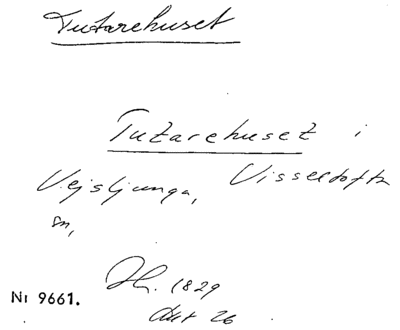 Tutarehuset
Tutarehuset i
Vejsljunga, Visseltofta
sn,
Hr. 1829
Akt 26
Nr 9661.